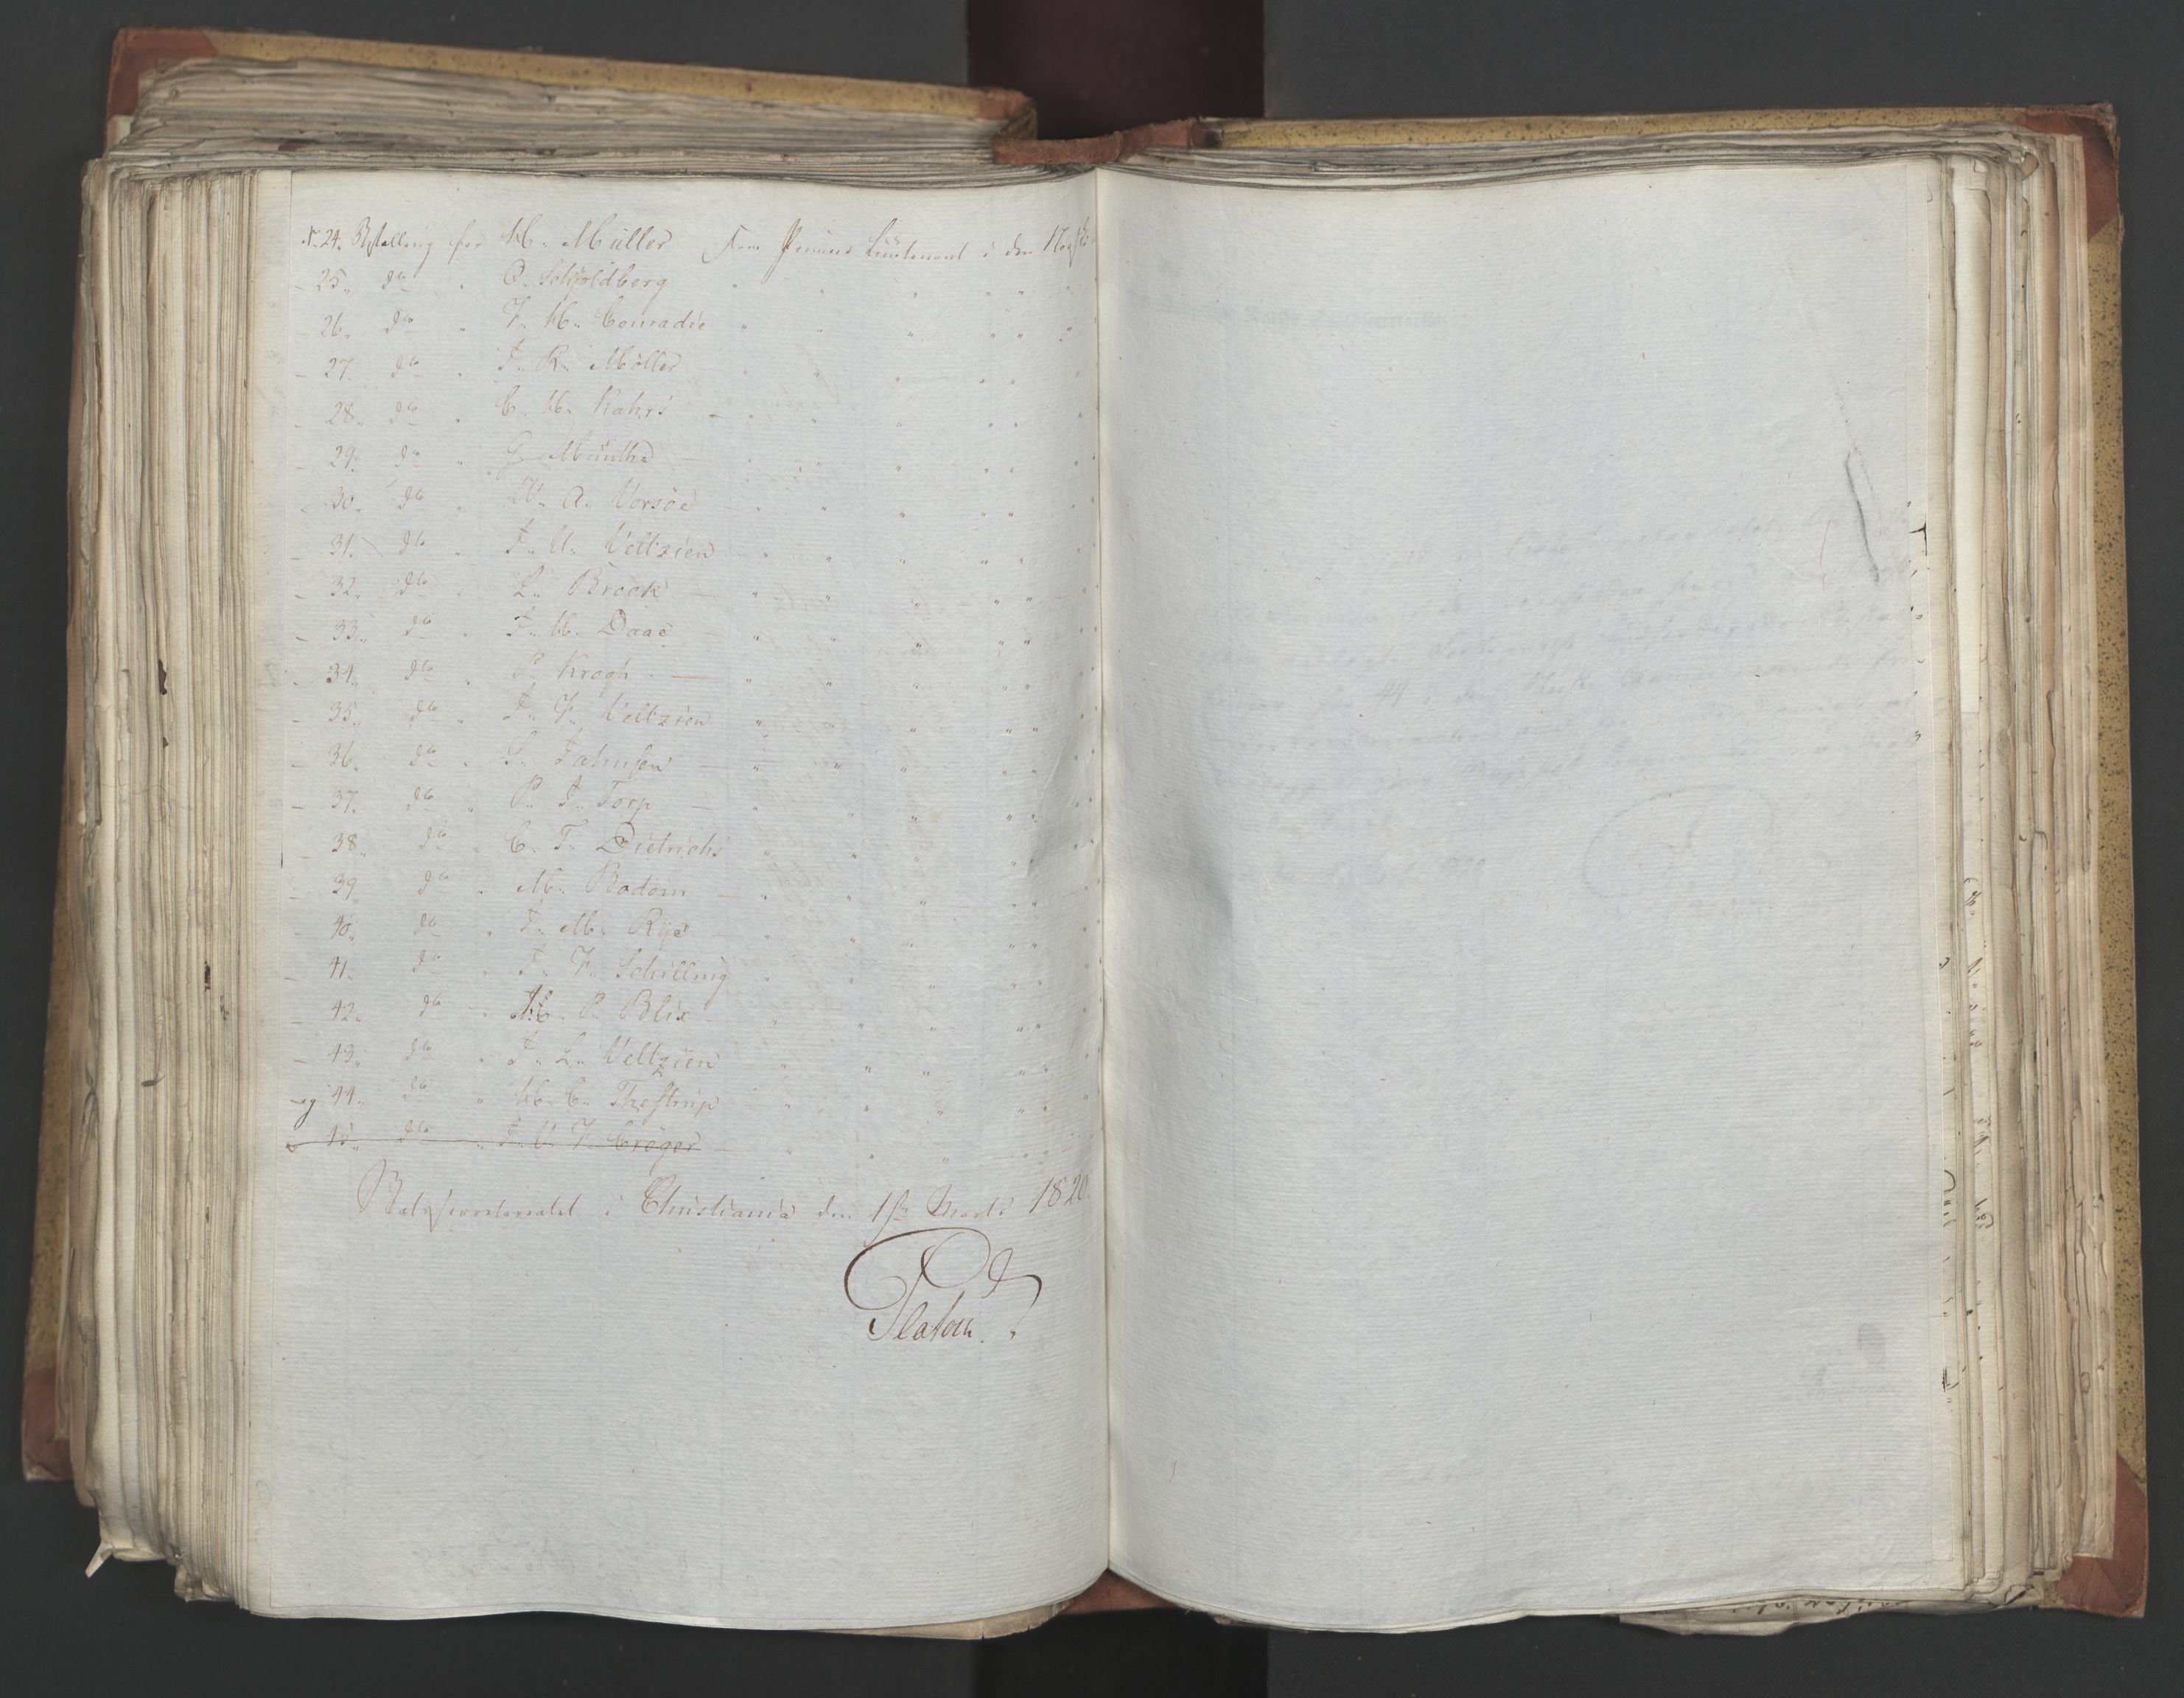 N. 24. Bestalling for H. Müller Som Premier Lieutenant i den Norske
- 25. do " O. Schioldberg " " " " "
- 26. do " F. H. Conradie " " " " "
- 27. do " J. R. Möller " " " "
- 28. do " C. H. Kahrs - " " " " "
- 29. do " G. Münthe - " " " " "
- 30. do " W. A. Vorsöe - " " " " "
- 31. do " J. U. Veltzien - " " " " "
- 32. do " L. Brock - " " " " "
- 33. do " J. H. Daae - " " " " "
- 34. do " P. Krogh - " " " " "
- 35. do " J. F. Veltzien " " " " "
- 36. do " S. Jahnsen - " " " " "
- 37. do " P. J. Torp - " " " " "
- 38. do " C. T. Dietrichs " " " " "
- 39. do " M. Bodom - " " " " "
- 40. do " J. M. Rye - " " " " "
- 41. do " J. F. Schilling " " " " "
- 42. do - " H. P. Blix " " " " "
- 43. do " J. L. Veltzien " " " " "
og 44. do " H. C. Thestrup " " " " "
45. do " J. C. F. Cröger - " " " " "
Statssecretariatet i Christiania den 1ste Marts 1820.
Platou.